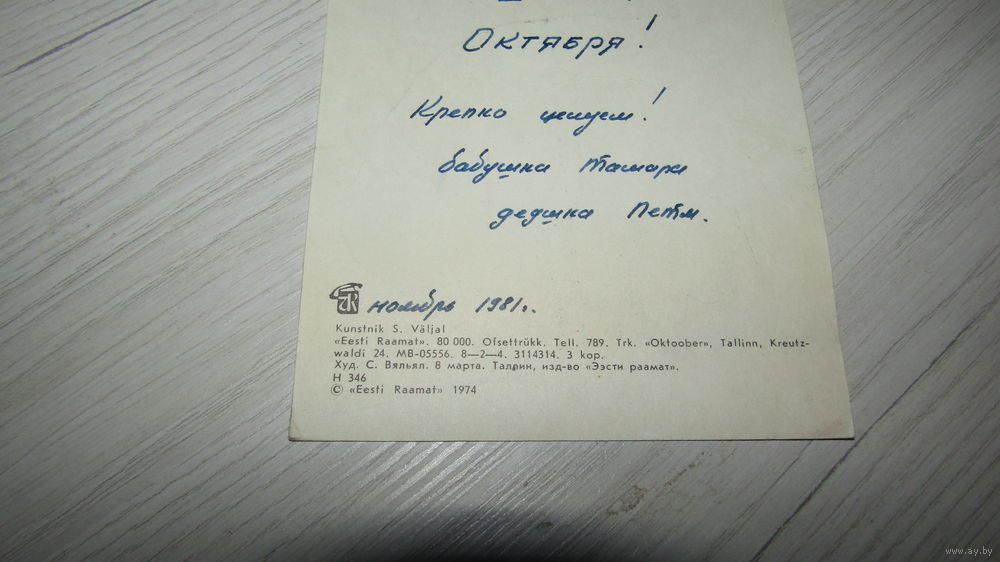 Октября!
Крепко целуем!
бабушка Тамара
дедушка Петя.
ноябрь 1981г.
Kunstnik S. Väljal
«Eesti Raamat». 80 000. Ofsettrükk. Tell. 789. Trk. «Oktoober», Tallinn, Kreutz-
waldi 24. MB-05556. 8—2—4. 3114314. 3 kop.
Худ. С. Вяльял. 8 марта. Таллин, изд-во «Ээсти раамат».
Н 346
© «Eesti Raamat» 1974
www.ay.by